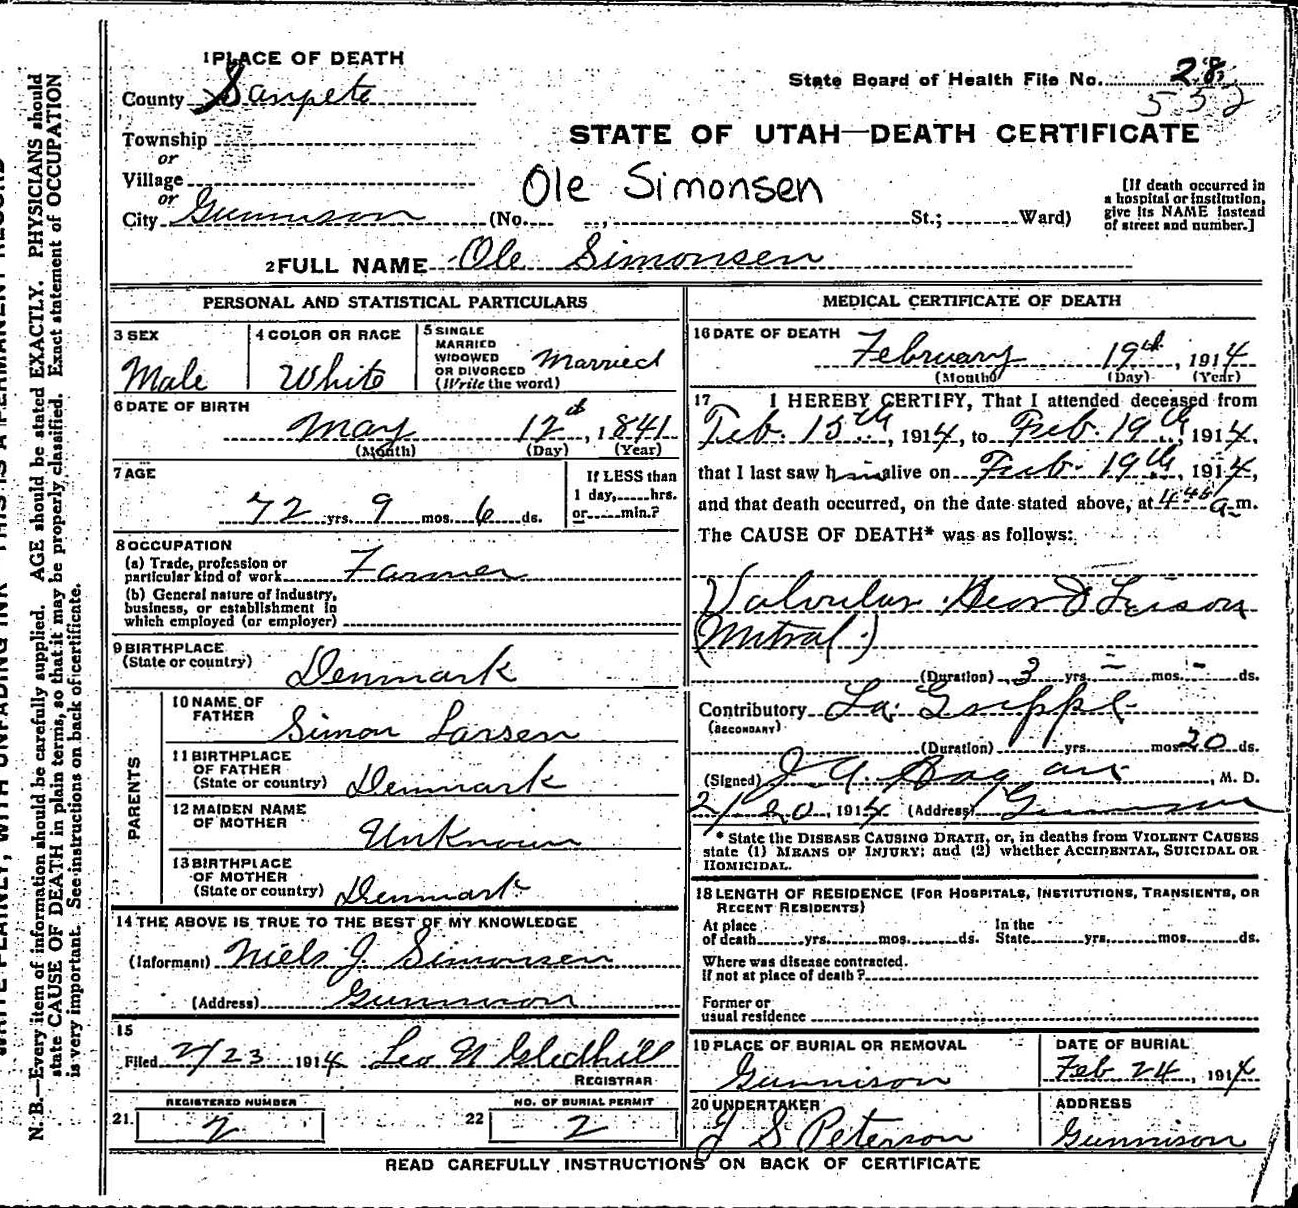 1 PLACE OF DEATH
State Board of Health File No. 28
552
County Sanpete
STATE OF UTAH—DEATH CERTIFICATE
Township
or
Village
or
Ole Simonsen
[If death occurred in
a hospital or institution,
give its NAME instead
of street and number.]
City Gunnison (No. , St.; Ward)
2 FULL NAME Ole Simonsen
PERSONAL AND STATISTICAL PARTICULARS
3 SEX
Male
4 COLOR OR RACE
White
5 SINGLE
MARRIED
WIDOWED
OR DIVORCED
(Write the word)
Married
6 DATE OF BIRTH
May 12th, 1841
(Month) (Day) (Year)
7 AGE
72 yrs. 9 mos. 6 ds.
If LESS than
1 day, hrs.
or min.?
8 OCCUPATION
(a) Trade, profession or
particular kind of work Farmer
(b) General nature of industry,
business, or establishment in
which employed (or employer)
9 BIRTHPLACE
(State or country) Denmark
PARENTS
10 NAME OF
FATHER Simon Larsen
11 BIRTHPLACE
OF FATHER
(State or country) Denmark
12 MAIDEN NAME
OF MOTHER Unknown
13 BIRTHPLACE
OF MOTHER
(State or country) Denmark
14 THE ABOVE IS TRUE TO THE BEST OF MY KNOWLEDGE
(Informant) Niels J. Simonsen
(Address) Gunnison
15
Filed 2/23 1914 Leo N Gledhill
REGISTRAR
21. REGISTERED NUMBER
2
22 NO. OF BURIAL PERMIT
2
MEDICAL CERTIFICATE OF DEATH
16 DATE OF DEATH
February 19th, 1914
(Month) (Day) (Year)
17 I HEREBY CERTIFY, That I attended deceased from
Feb. 15th, 1914, to Feb. 19th, 1914,
that I last saw him alive on Feb. 19th, 1914,
and that death occurred, on the date stated above, at 4 45 a m.
The CAUSE OF DEATH* was as follows:
Valvular Heart Lesion
(Mitral.)
(Duration) 3 yrs. – mos. – ds.
Contributory La Grippe
(SECONDARY)
(Duration) yrs. mos. 20 ds.
(Signed) J. A. Hagan, M. D.
2/20, 1914 (Address) Gunnison
* State the DISEASE CAUSING DEATH, or, in deaths from VIOLENT CAUSES
state (1) MEANS OF INJURY; and (2) whether ACCIDENTAL, SUICIDAL OR
HOMICIDAL.
18 LENGTH OF RESIDENCE (FOR HOSPITALS, INSTITUTIONS, TRANSIENTS, OR
RECENT RESIDENTS)
At place
of death yrs. mos. ds.
In the
State yrs. mos. ds.
Where was disease contracted.
If not at place of death?
Former or
usual residence
19 PLACE OF BURIAL OR REMOVAL
Gunnison
DATE OF BURIAL
Feb 24, 1914
20 UNDERTAKER
J S Peterson
ADDRESS
Gunnison
READ CAREFULLY INSTRUCTIONS ON BACK OF CERTIFICATE
N. B.—Every item of information should be carefully supplied. AGE should be stated EXACTLY. PHYSICIANS should
state CAUSE OF DEATH in plain terms, so that it may be properly classified. Exact statement of OCCUPATION
is very important. See instructions on back of certificate.